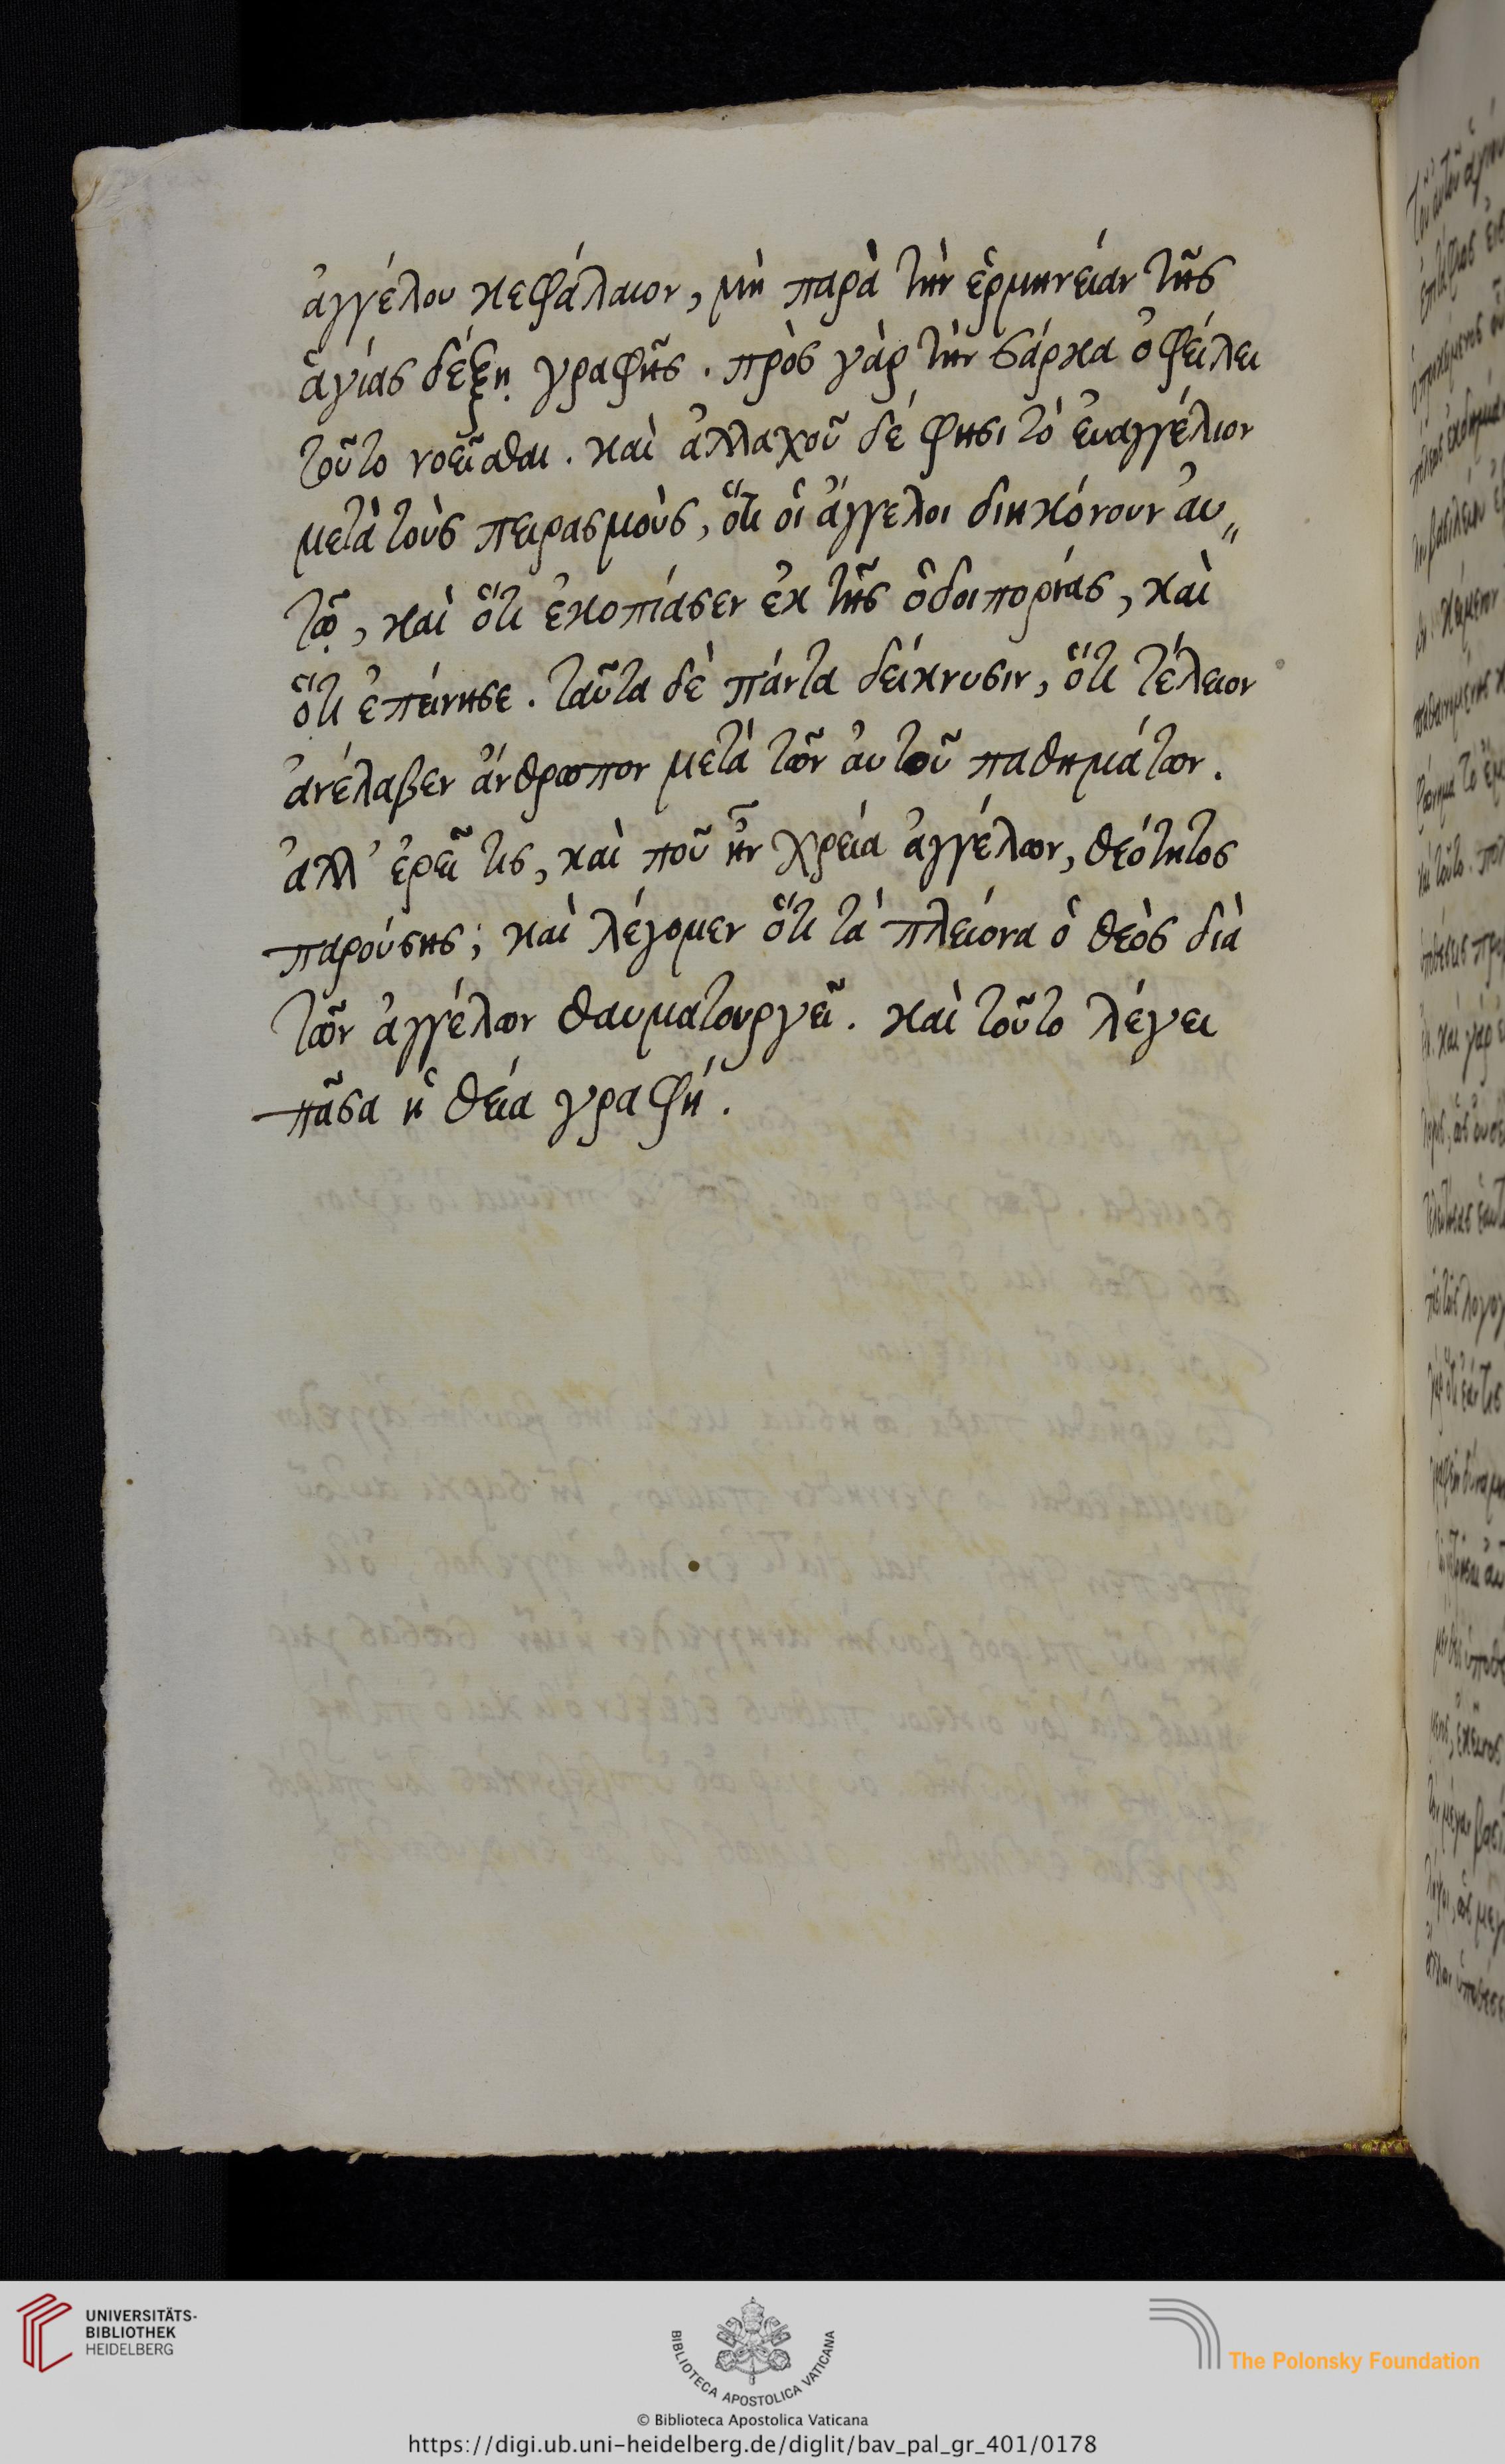 ἀγγέλου κεφάλαιον, μὴ παρὰ τὴν ἑρμηνείαν τῆς
ἁγίας δέξῃ γραφῆς. πρὸς γὰρ τὴν σάρκα ὀφείλει
τοῦτο νοεῖσθαι. καὶ ἀλλαχοῦ δέ φησι τὸ ἐυαγγέλιον
μετὰ τοὺς πειρασμοὺς, ὅτι οἱ ἄγγελοι διηκόνουν ἀυ„
τῷ, καὶ ὅτι ἐκοπίασεν ἐκ τῆς ὁδοιπορίας, καὶ
ὅτι ἐπείνησε. ταῦτα δὲ πάντα δείκνυσιν, ὅτι τέλειον
ἀνέλαβεν ἄνθρωπον μετὰ τῶν ἀυτοῦ παθημάτων.
ἀλλ' ἐρεῖ τις, καὶ ποῦ ἦν χρεία ἀγγέλων, θεότητος
παρούσης; καὶ λέγομεν ὅτι τὰ πλείονα ὁ θεὸς διὰ
τῶν ἀγγέλων θαυματουργεῖ. καὶ τοῦτο λέγει
πᾶσα ἡ θεία γραφή.
UNIVERSITÄTS-
BIBLIOTHEK
HEIDELBERG
BIBLIOTECA APOSTOLICA VATICANA
The Polonsky Foundation
© Biblioteca Apostolica Vaticana
https://digi.ub.uni-heidelberg.de/diglit/bav_pal_gr_401/0178